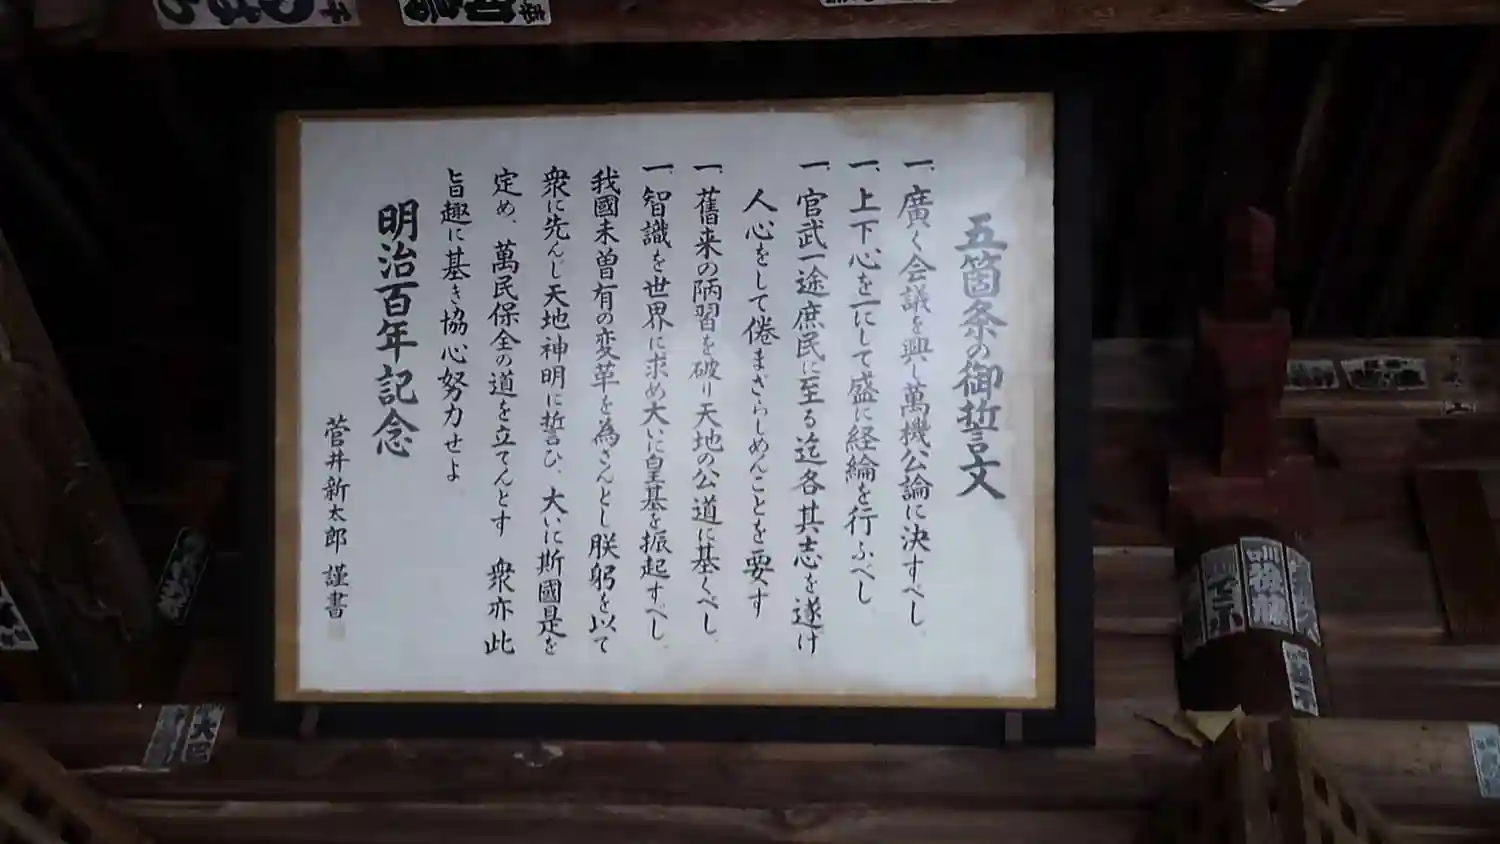 五箇条の御誓文
一、廣く会議を興し萬機公論に決すべし
一、上下心を一にして盛に経綸を行ふべし
一、官武一途庶民に至る迄各其志を遂け
人心をして倦まざらしめんことを要す
一、舊来の陋習を破り天地の公道に基くべし
一、智識を世界に求め大いに皇基を振起すべし
我國未曽有の変革を為さんとし朕躬を以て
衆に先んし天地神明に誓ひ、大いに斯國是を
定め、萬民保全の道を立てんとす 衆亦此
旨趣に基き協心努力せよ
明治百年記念
菅井新太郎 謹書